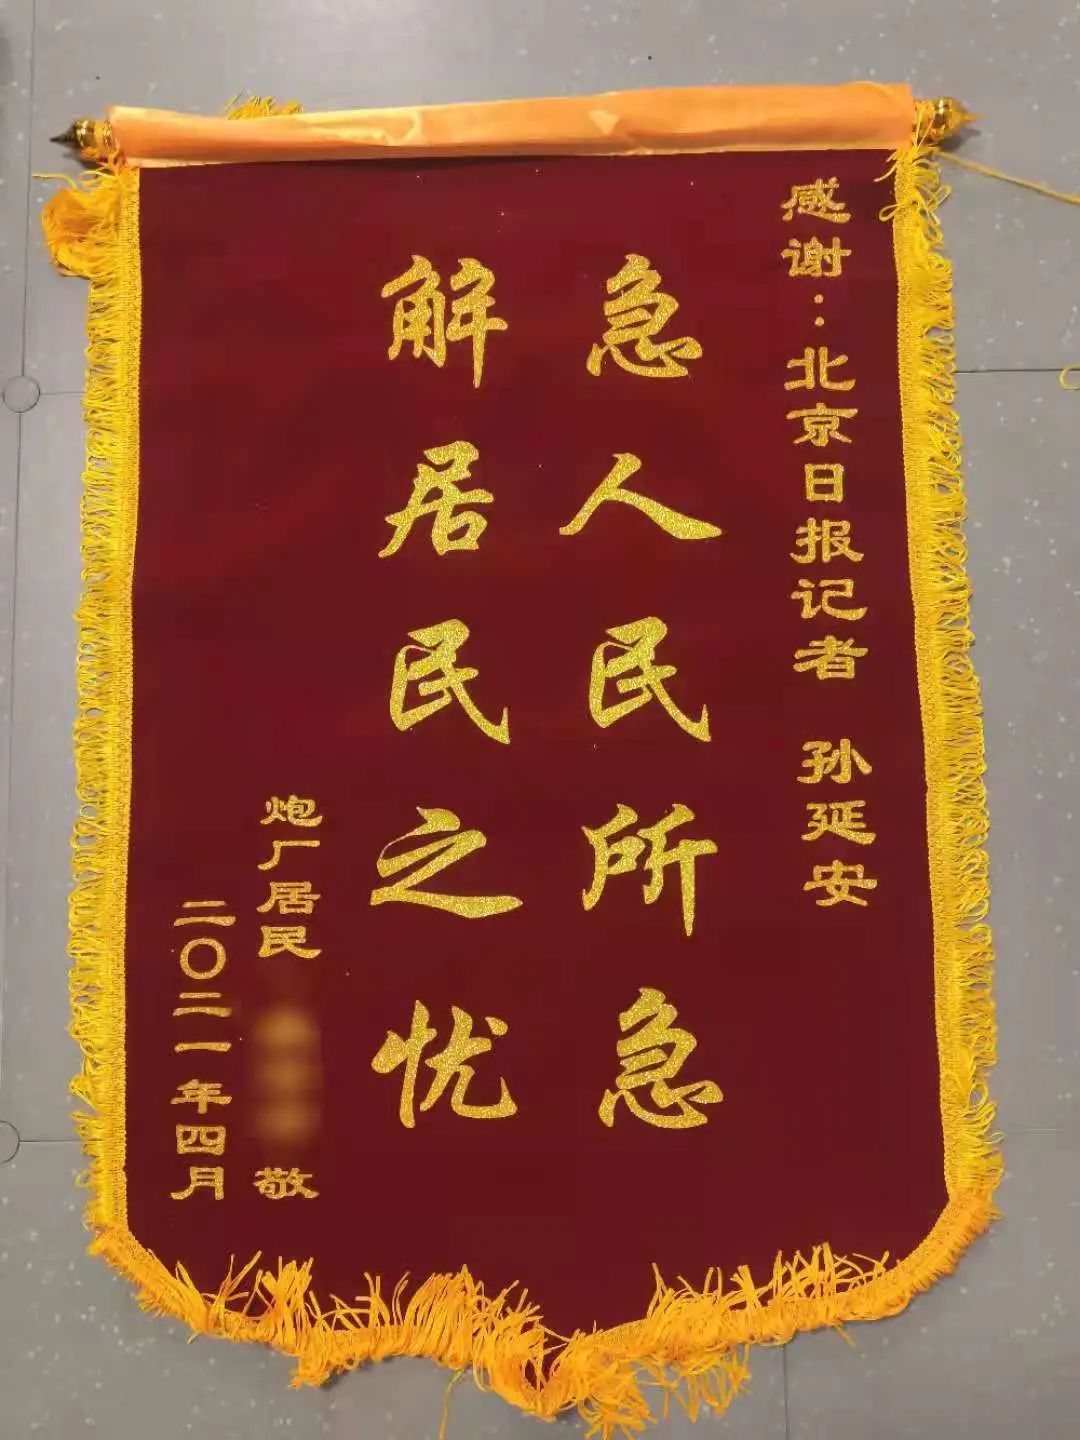 感谢：北京日报记者 孙延安
急人民所急
解居民之忧
炮厂居民 敬
二〇二一年四月